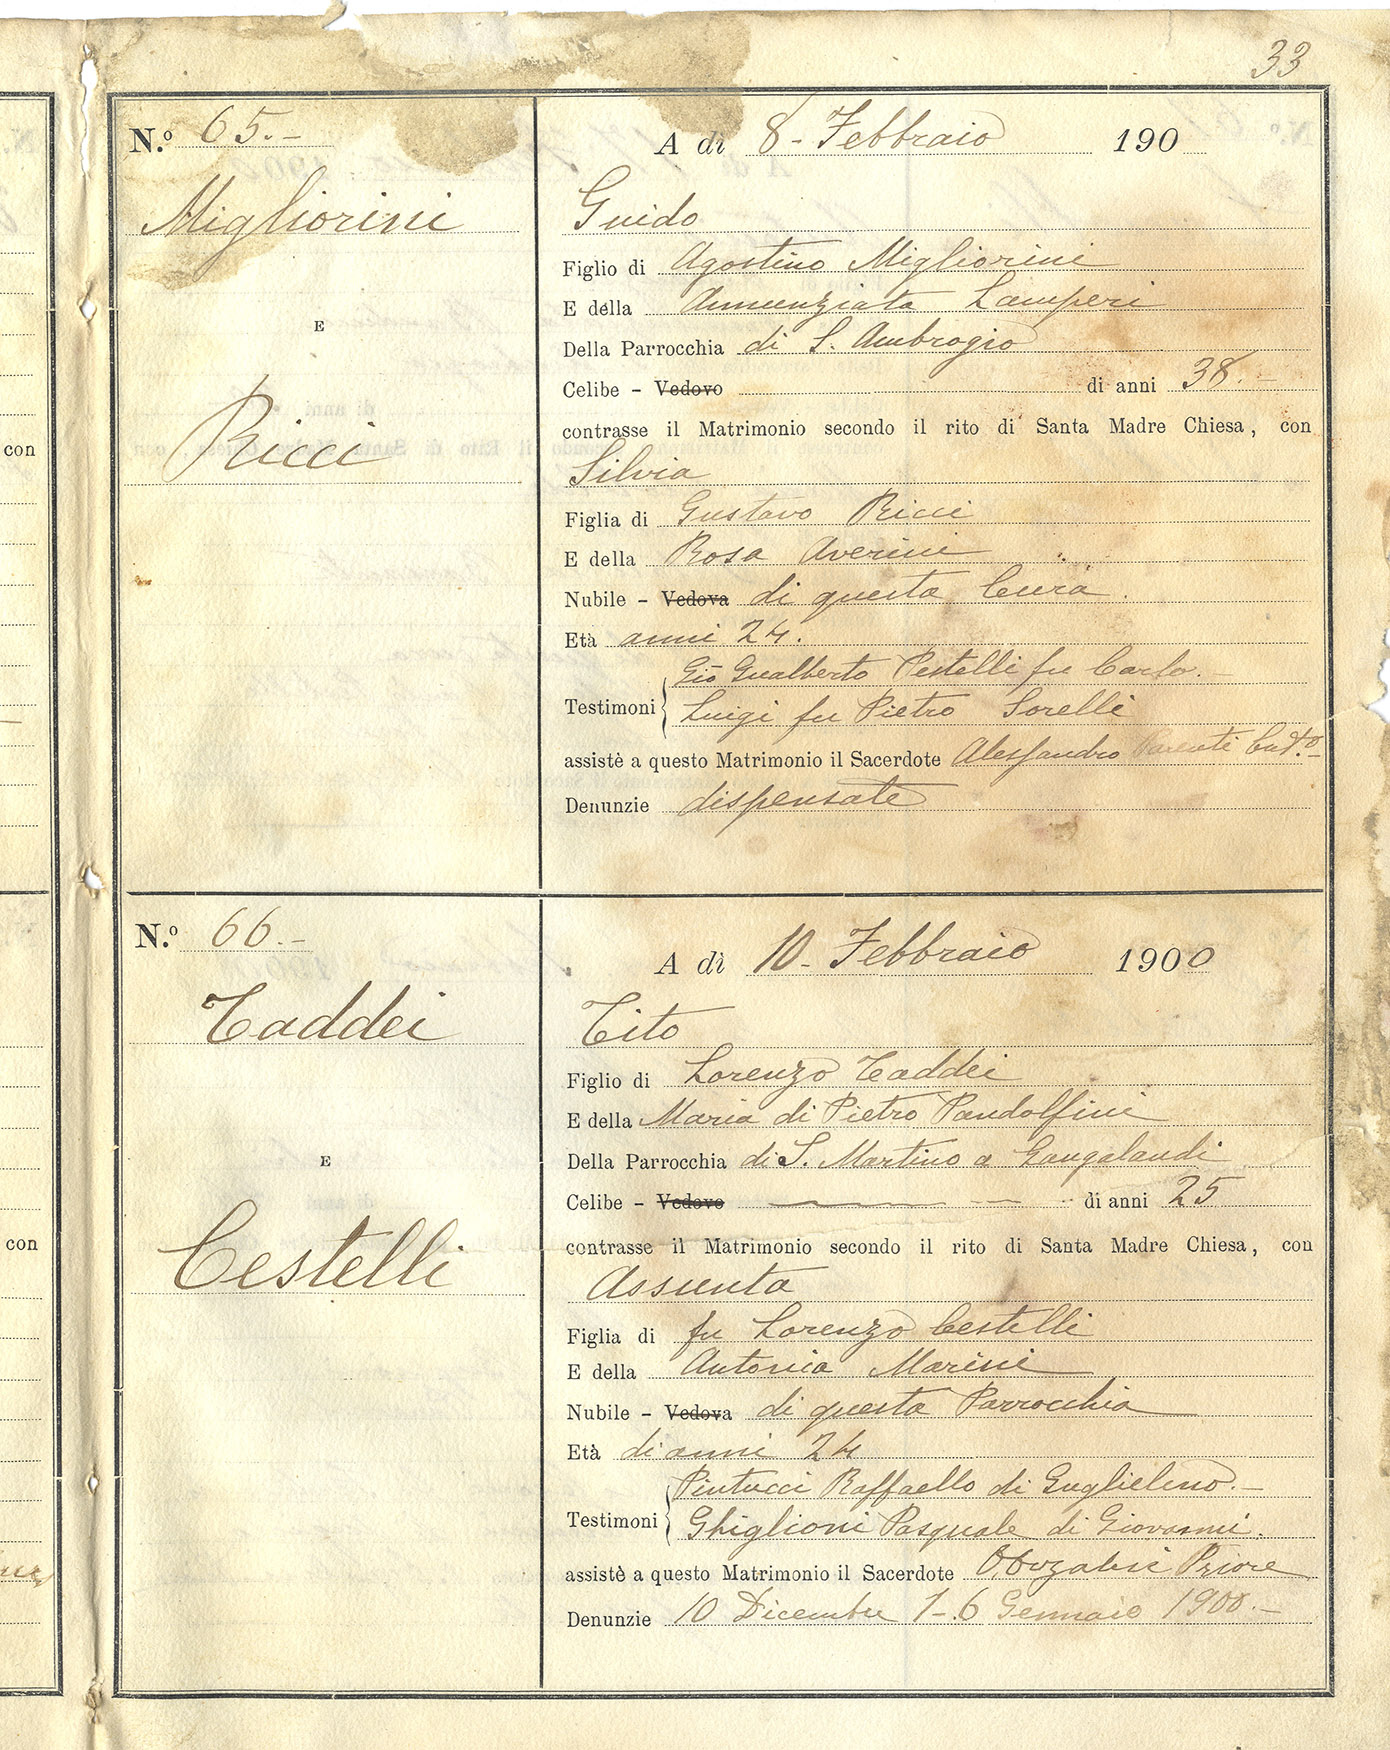 33
con
N.º 65.-
Migliorini
E
Ricci
A dì 8- Febbraio 190
Guido
Figlio di Agostino Migliorini
E della Annunziata Lamperi
Della Parrocchia di S. Ambrogio
Celibe - Vedovo di anni 38.-
contrasse il Matrimonio secondo il rito di Santa Madre Chiesa, con
Silvia
Figlia di Gustavo Ricci
E della Rosa Averini
Nubile - Vedova di questa Cura.
Età anni 24.
Gio Gualberto Pestelli fu Carlo.-
Testimoni Luigi fu Pietro Sorelli
assistè a questo Matrimonio il Sacerdote Alessandro Parenti
Denunzie dispensate
con
N.º 66.-
Taddei
E
Cestelli
A dì 10- Febbraio 1900
Tito
Figlio di Lorenzo Taddei
E della Maria di Pietro Pandolfini
Della Parrocchia di S. Martino a Gangalandi
Celibe - Vedovo di anni 25
contrasse il Matrimonio secondo il rito di Santa Madre Chiesa, con
Assunta
Figlia di fu Lorenzo Cestelli
E della Antonia Marini
Nubile - Vedova di questa Parrocchia
Età di anni 24
Pintucci Raffaello di Guglielmo.-
Testimoni Ghiglioni Pasquale di Giovanni.
assistè a questo Matrimonio il Sacerdote Priore
Denunzie 10 Dicembre 1-6 Gennaio 1900.-